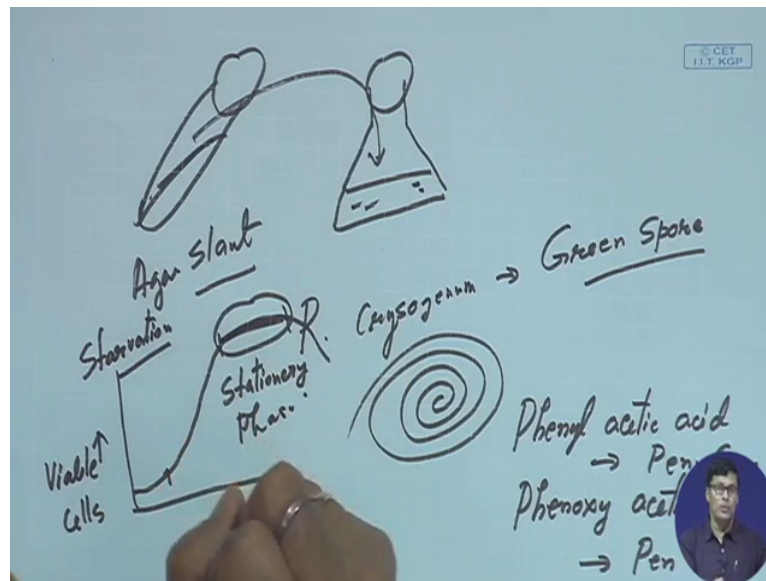 © CET
I.I.T. KGP
Agar Slant
Green Spore
P. Crysogenum →
Starvation
Stationery
Phase
Viable ↑
Cells
Phenyl acetic acid
→ Pen
Phenoxy acet
→ Pen